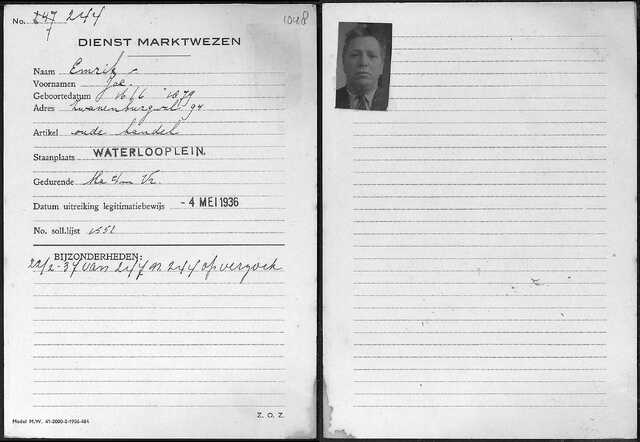 No. 247 244
1048
DIENST MARKTWEZEN
Naam Emrik
Voornamen Joe.
Geboortedatum 16/6 1879
Adres Zwanenburgwal 94
Artikel oude handel
Staanplaats WATERLOOPLEIN.
Gedurende Ma t/m Vr.
Datum uitreiking legitimatiebewijs - 4 MEI 1936
No. soll.lijst 1552
BIJZONDERHEDEN:
22/2-37 van 247 n 244 op verzoek
Z. O. Z.
Model M.W. 41-2000-2-1936-484